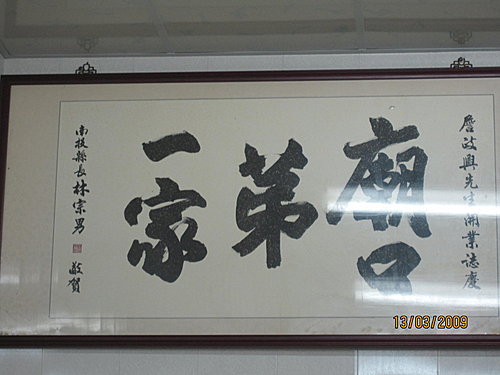 詹政興先生開業誌慶
廟口
第
一家
南投縣長林宗男
敬賀
13/03/2009